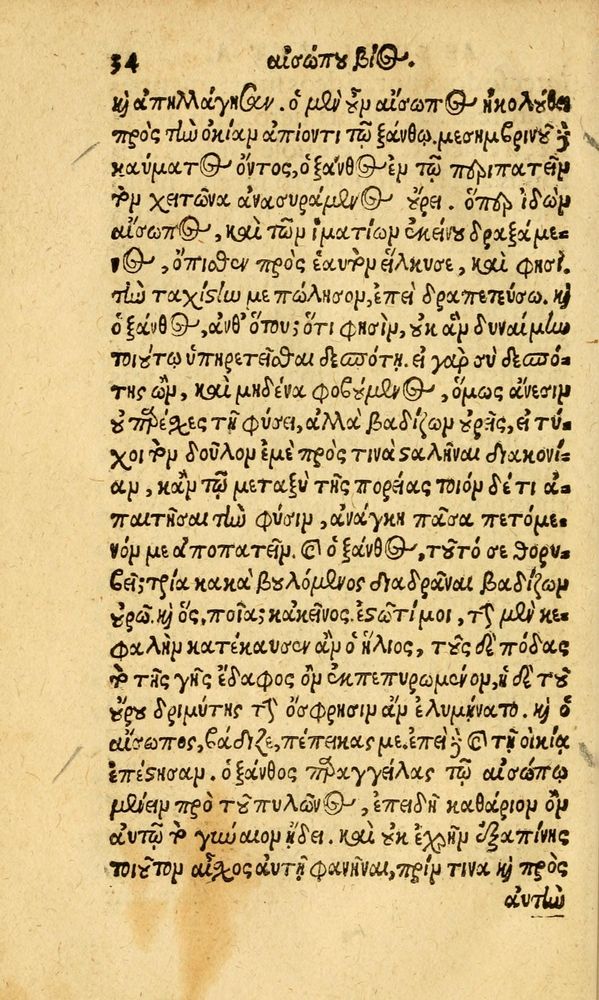 34 αἰσώπου βίος.
καὶ ἀπηλλάγησαν. ὁ μὲν οὖν αἴσωπος ἠκολούθει
πρὸς τὴν οἰκίαν ἀπιόντι τῷ ξάνθῳ. μεσημβρινοῦ δὲ
καύματος ὄντος, ὁ ξάνθος ἐν τῷ περιπατεῖν
τὸν χιτῶνα ἀνασυράμενος οὔρει. ὅπερ ἰδὼν
αἴσωπος, καὶ τῶν ἱματίων ἐκείνου δραξάμε-
νος, ὄπισθεν πρὸς ἑαυτὸν εἵλκυσε, καὶ φησί.
τὴν ταχίστην με πώλησον, ἐπεὶ δραπετεύσω. καὶ
ὁ ξάνθος, ἀνθ' ὅτου; ὅτι φησὶν, οὐκ ἂν δυναίμην
τοιούτῳ ὑπηρετεῖσθαι δεσπότῃ. εἰ γὰρ σὺ δεσπό-
της ὢν, καὶ μηδένα φοβούμενος, ὅμως ἄνεσιν
οὐ παρέχες τῇ φύσει, ἀλλὰ βαδίζων οὐρεῖς, εἰ τύ-
χοι τὸν δοῦλον ἐμὲ πρὸς τινὰ σταλῆναι διακονί-
αν, κἂν τῷ μεταξὺ τῆς πορείας τοιόνδέ τι ἀ-
παιτῆσαι τὴν φύσιν, ἀνάγκη πᾶσα πετόμε-
νόν με ἀποπατεῖν. καὶ ὁ ξάνθος, τοῦτό σε θορυ-
βεῖ; τρία κακὰ βουλόμενος διαδρᾶναι βαδίζων
οὐρῶ. καὶ ὃς, ποῖα; κἀκεῖνος. ἑστῶτί μοι, τὴν μὲν κε-
φαλὴν κατέκαυσεν ἂν ὁ ἥλιος, τοὺς δὲ πόδας
τὸ τῆς γῆς ἔδαφος ὂν ἐκπεπυρωμένον, ἡ δὲ τοῦ
οὔρου δριμύτης τὴν ὄσφρησιν ἂν ἐλυμήνατο. καὶ ὁ
αἴσωπος, βάδιζε, πέπεικας με. ἐπεὶ δὲ καὶ τῇ οἰκίᾳ
ἐπέστησαν. ὁ ξάνθος παραγγείλας τῷ αἰσώπῳ
μένειν πρὸ τοῦ πυλῶνος, ἐπειδὴ καθάριον ὂν
αὐτῷ τὸ γύναιον ᾔδει. καὶ οὐκ ἐχρῆν ἐξαπίνης
τοιοῦτον αἶσχος αὐτῇ φανῆναι, πρίν τινα καὶ πρὸς
αὐτὴν